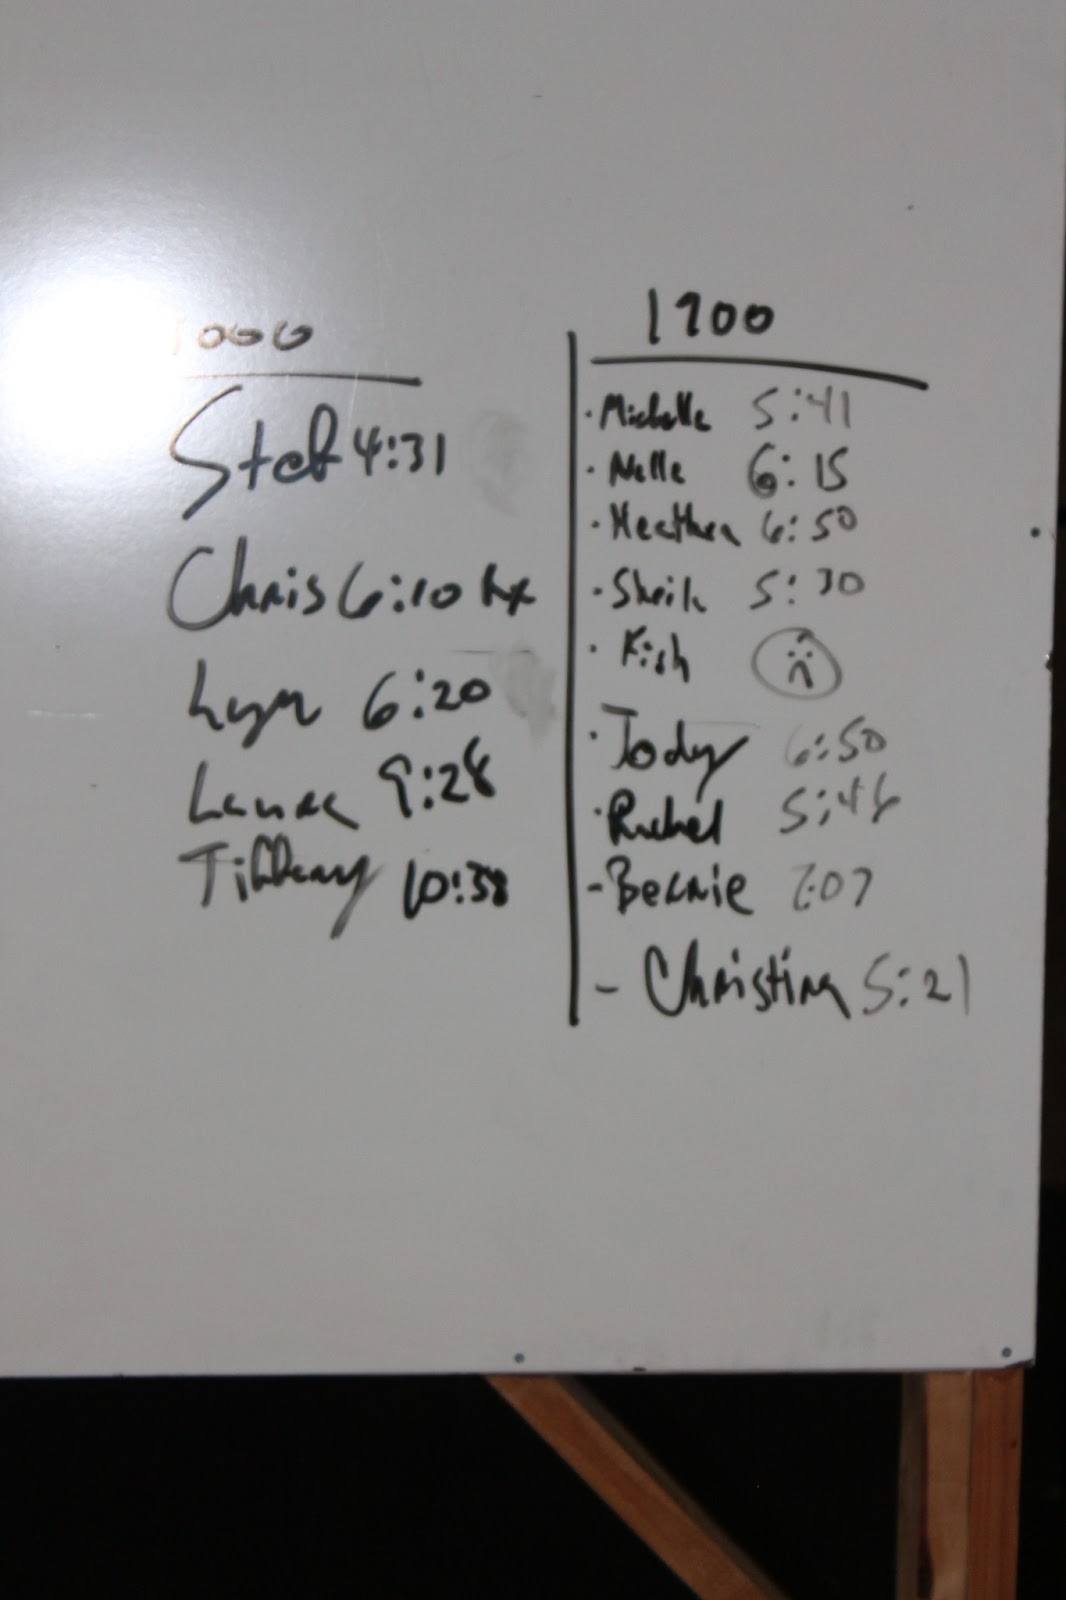 1000
Stef 4:31
Chris 6:10 Rx
Lyn 6:20
Laura 9:28
Tiffany 10:38
1900
· Michelle 5:41
· Nelle 6:15
· Heather 6:50
· Sheila 5:30
· Kish
· Jody 6:50
· Rachel
- Bernie 7:07
- Christina 5:21